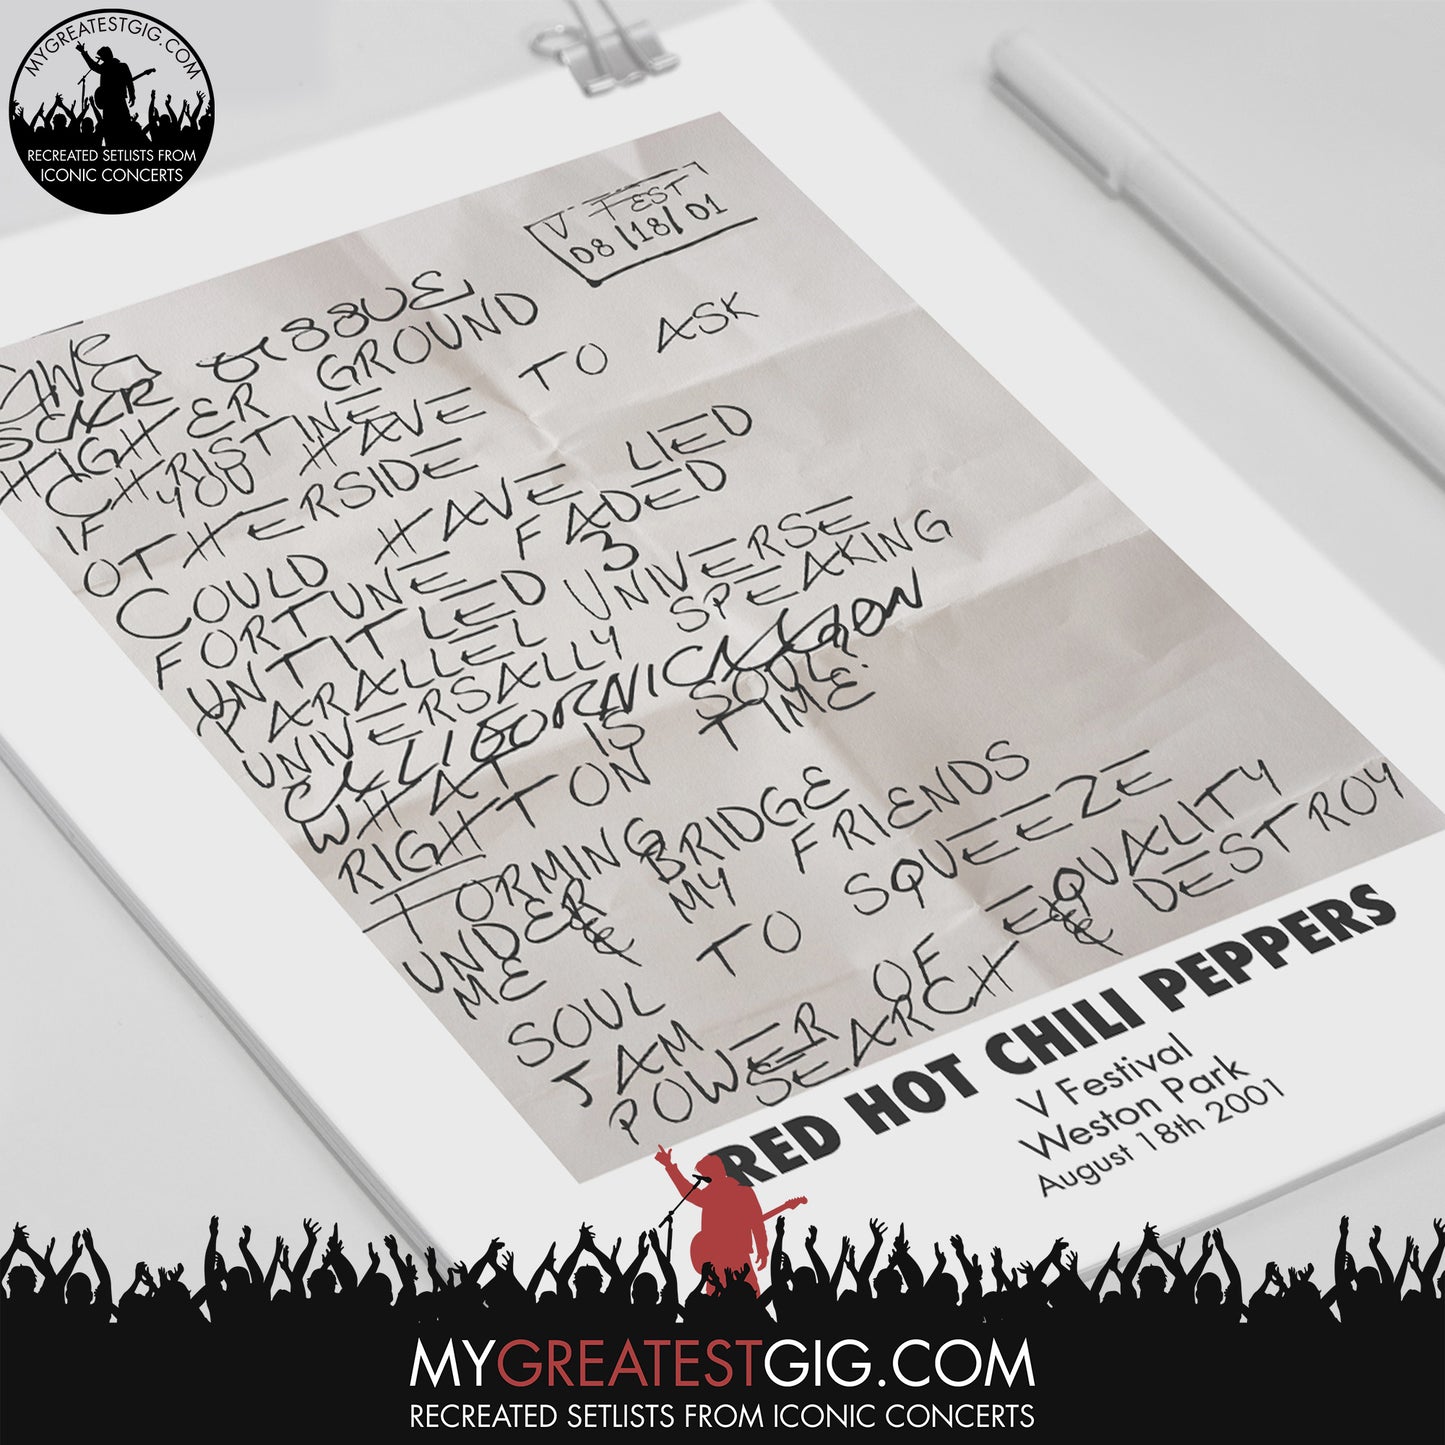 MYGREATESTGIG.COM
RECREATED SETLISTS FROM
ICONIC CONCERTS
V FEST
08/18/01
SCAR
HIGHER GROUND
CHRISTINE
IF YOU HAVE TO ASK
OTHERSIDE
COULD HAVE LIED
FORTUNE FADED
UNTITLED 3
PARALLEL UNIVERSE
UNIVERSALLY SPEAKING
CALIFORNICATION
WHAT IS SOUL?
RIGHT ON TIME
TORMING
UNDER BRIDGE
ME & MY FRIENDS
SOUL TO SQUEEZE
JAM
POWER OF EQUALITY
SEARCH & DESTROY
RED HOT CHILI PEPPERS
V Festival
Weston Park
August 18th 2001
MYGREATESTGIG.COM
RECREATED SETLISTS FROM ICONIC CONCERTS